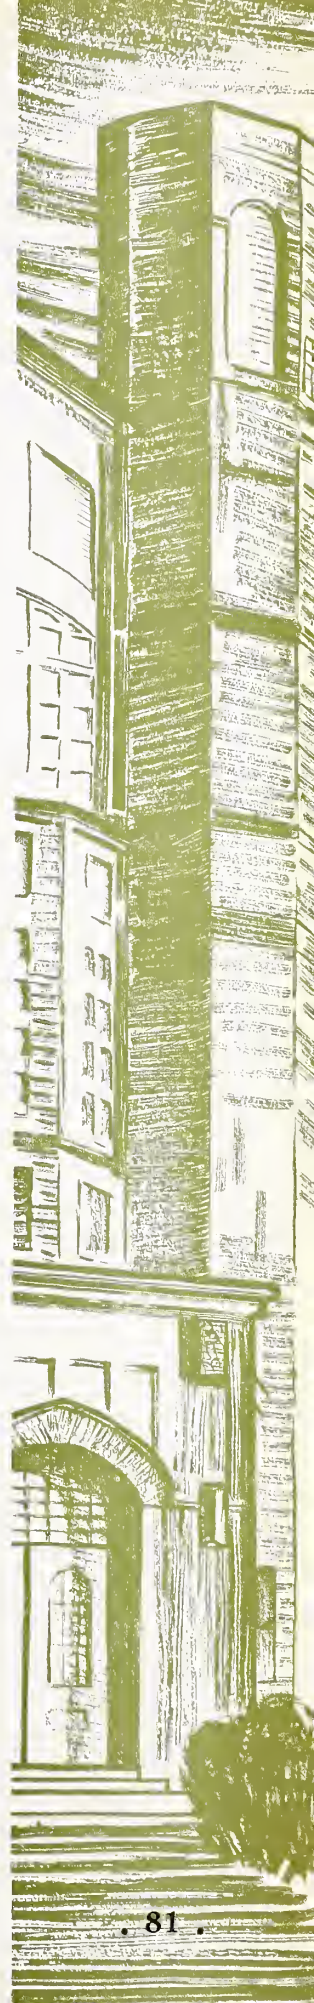 . 81 .